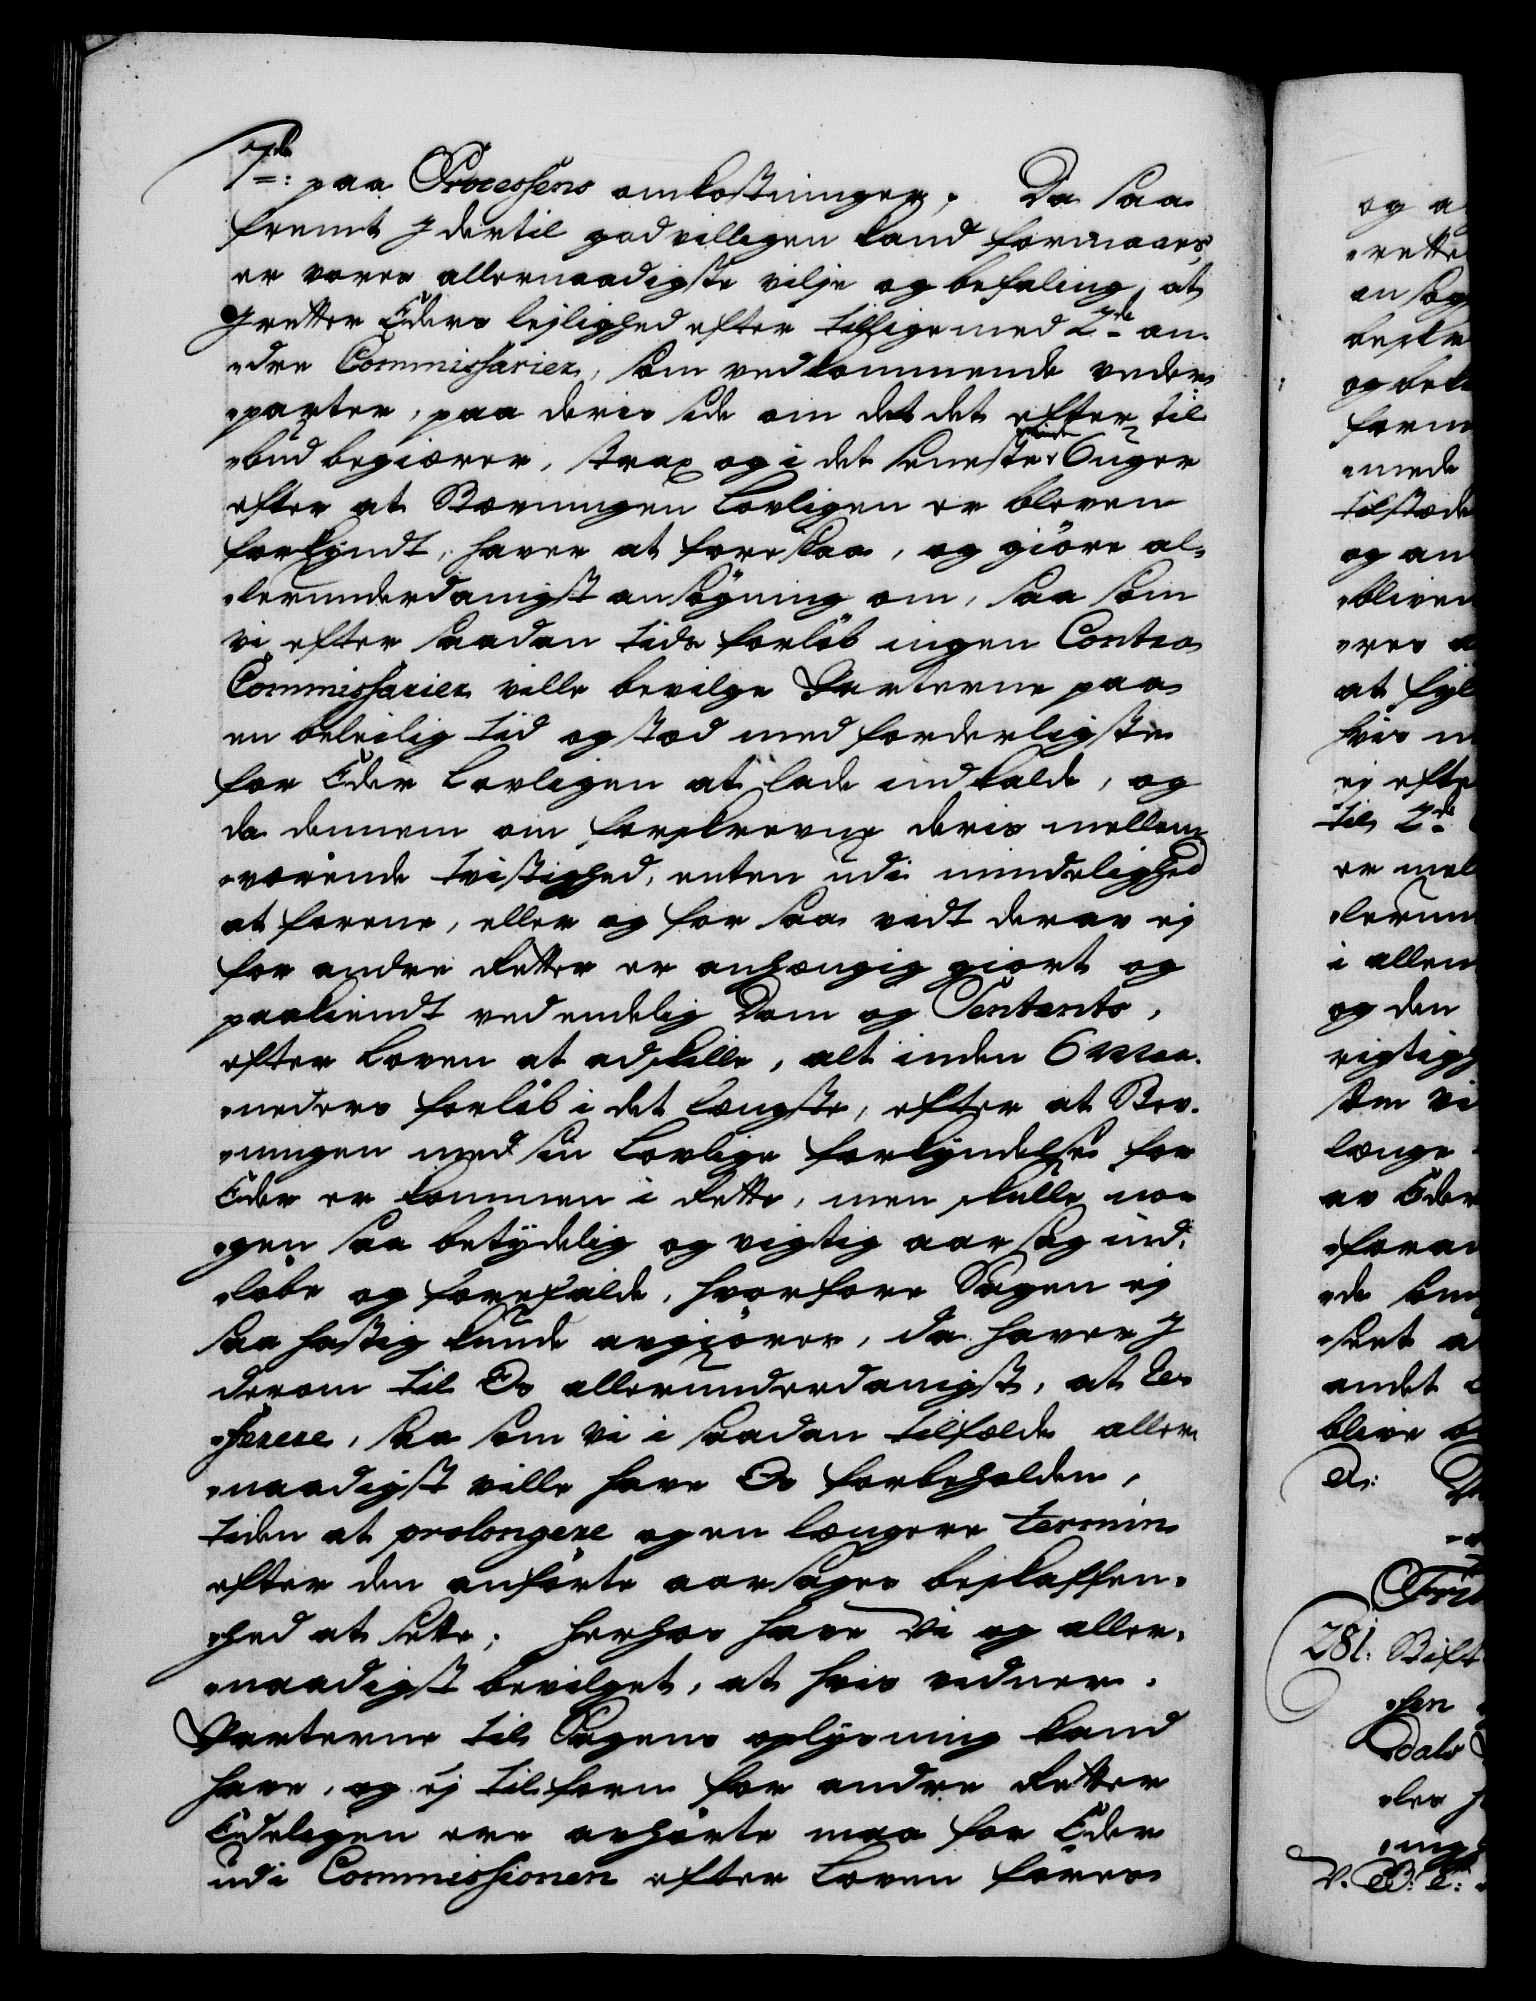 7de: paa Processens omkostninger. Da saa
fremt I dertil godvilligen kand formaaes,
er vores allernaadigste vilje og befaling, at
I retter Eders lejlighed efter tilligemed 2de an-
dre Commissarier, som vedkommende veder-
parter, paa deris side om det det efter til
bud begiærer, strax og i det seneste inden 6 uger
efter at Stevningen lovligen er bleven
forkyndt, haver at foreslaa, og giöre al-
lerunderdanigst ansögning om, saa som
vi efter saadan tids forlöb ingen Contra
Commissarier ville bevilge Parterne paa
en beleilig tid og stæd med forderligste
for Eder lovligen at lade indkalde, og
da dennem om forskrevne deris mellem
værende tvistighed, enten udi mindelighed
at forene, eller og for saa vidt derav ej
for andre Retter er anhængig giort og
paakiendt ved endelig Dom og Sentents,
efter Loven at adskille, alt inden 6 Maa-
neders forlöb i det længste, efter at Stev-
ningen med sin Lovlige forkyndelse for
Eder er kommen i Rette, men skulle no-
gen saa betydelig og vigtig aarsag ind-
löbe og forefalde, hvorfore Sagen ej
saa hastig kunde avgiöres, da haver I
derom til Os allerunderdanigst, at Re-
ferere, saa som vi i saadan tilfælde aller-
naadigst ville have Os forbeholden,
tiden at prolongere og en længere termin
efter den anförte aarsages beskaffen-
hed at sette; Herhos have Vi og aller-
naadigst bevilget, at hvis vidner
Parterne til Sagens oplysning kand
have, og ej tilforn for andre Retter
Edeligen ere avhörte maa for Eder
udi Commissionen efter Loven föres
og a
rette
an sog
beskr
og bek
form
mede
tilstæde
og an
bliven
res a
at fyl
hvis m
ej efte
til 2de
er mel
lerun
i allem
og den
rigtig
som vi
længe
av Eder
foran
de som
sent a
andet
blive b
Frid
281: Stift
hen
dals
ler h
ing